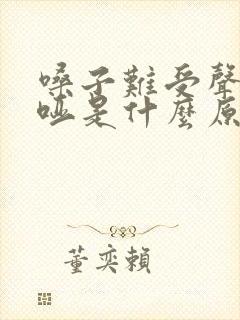 嗓子難受聲
啞是什麼原
董奕賴